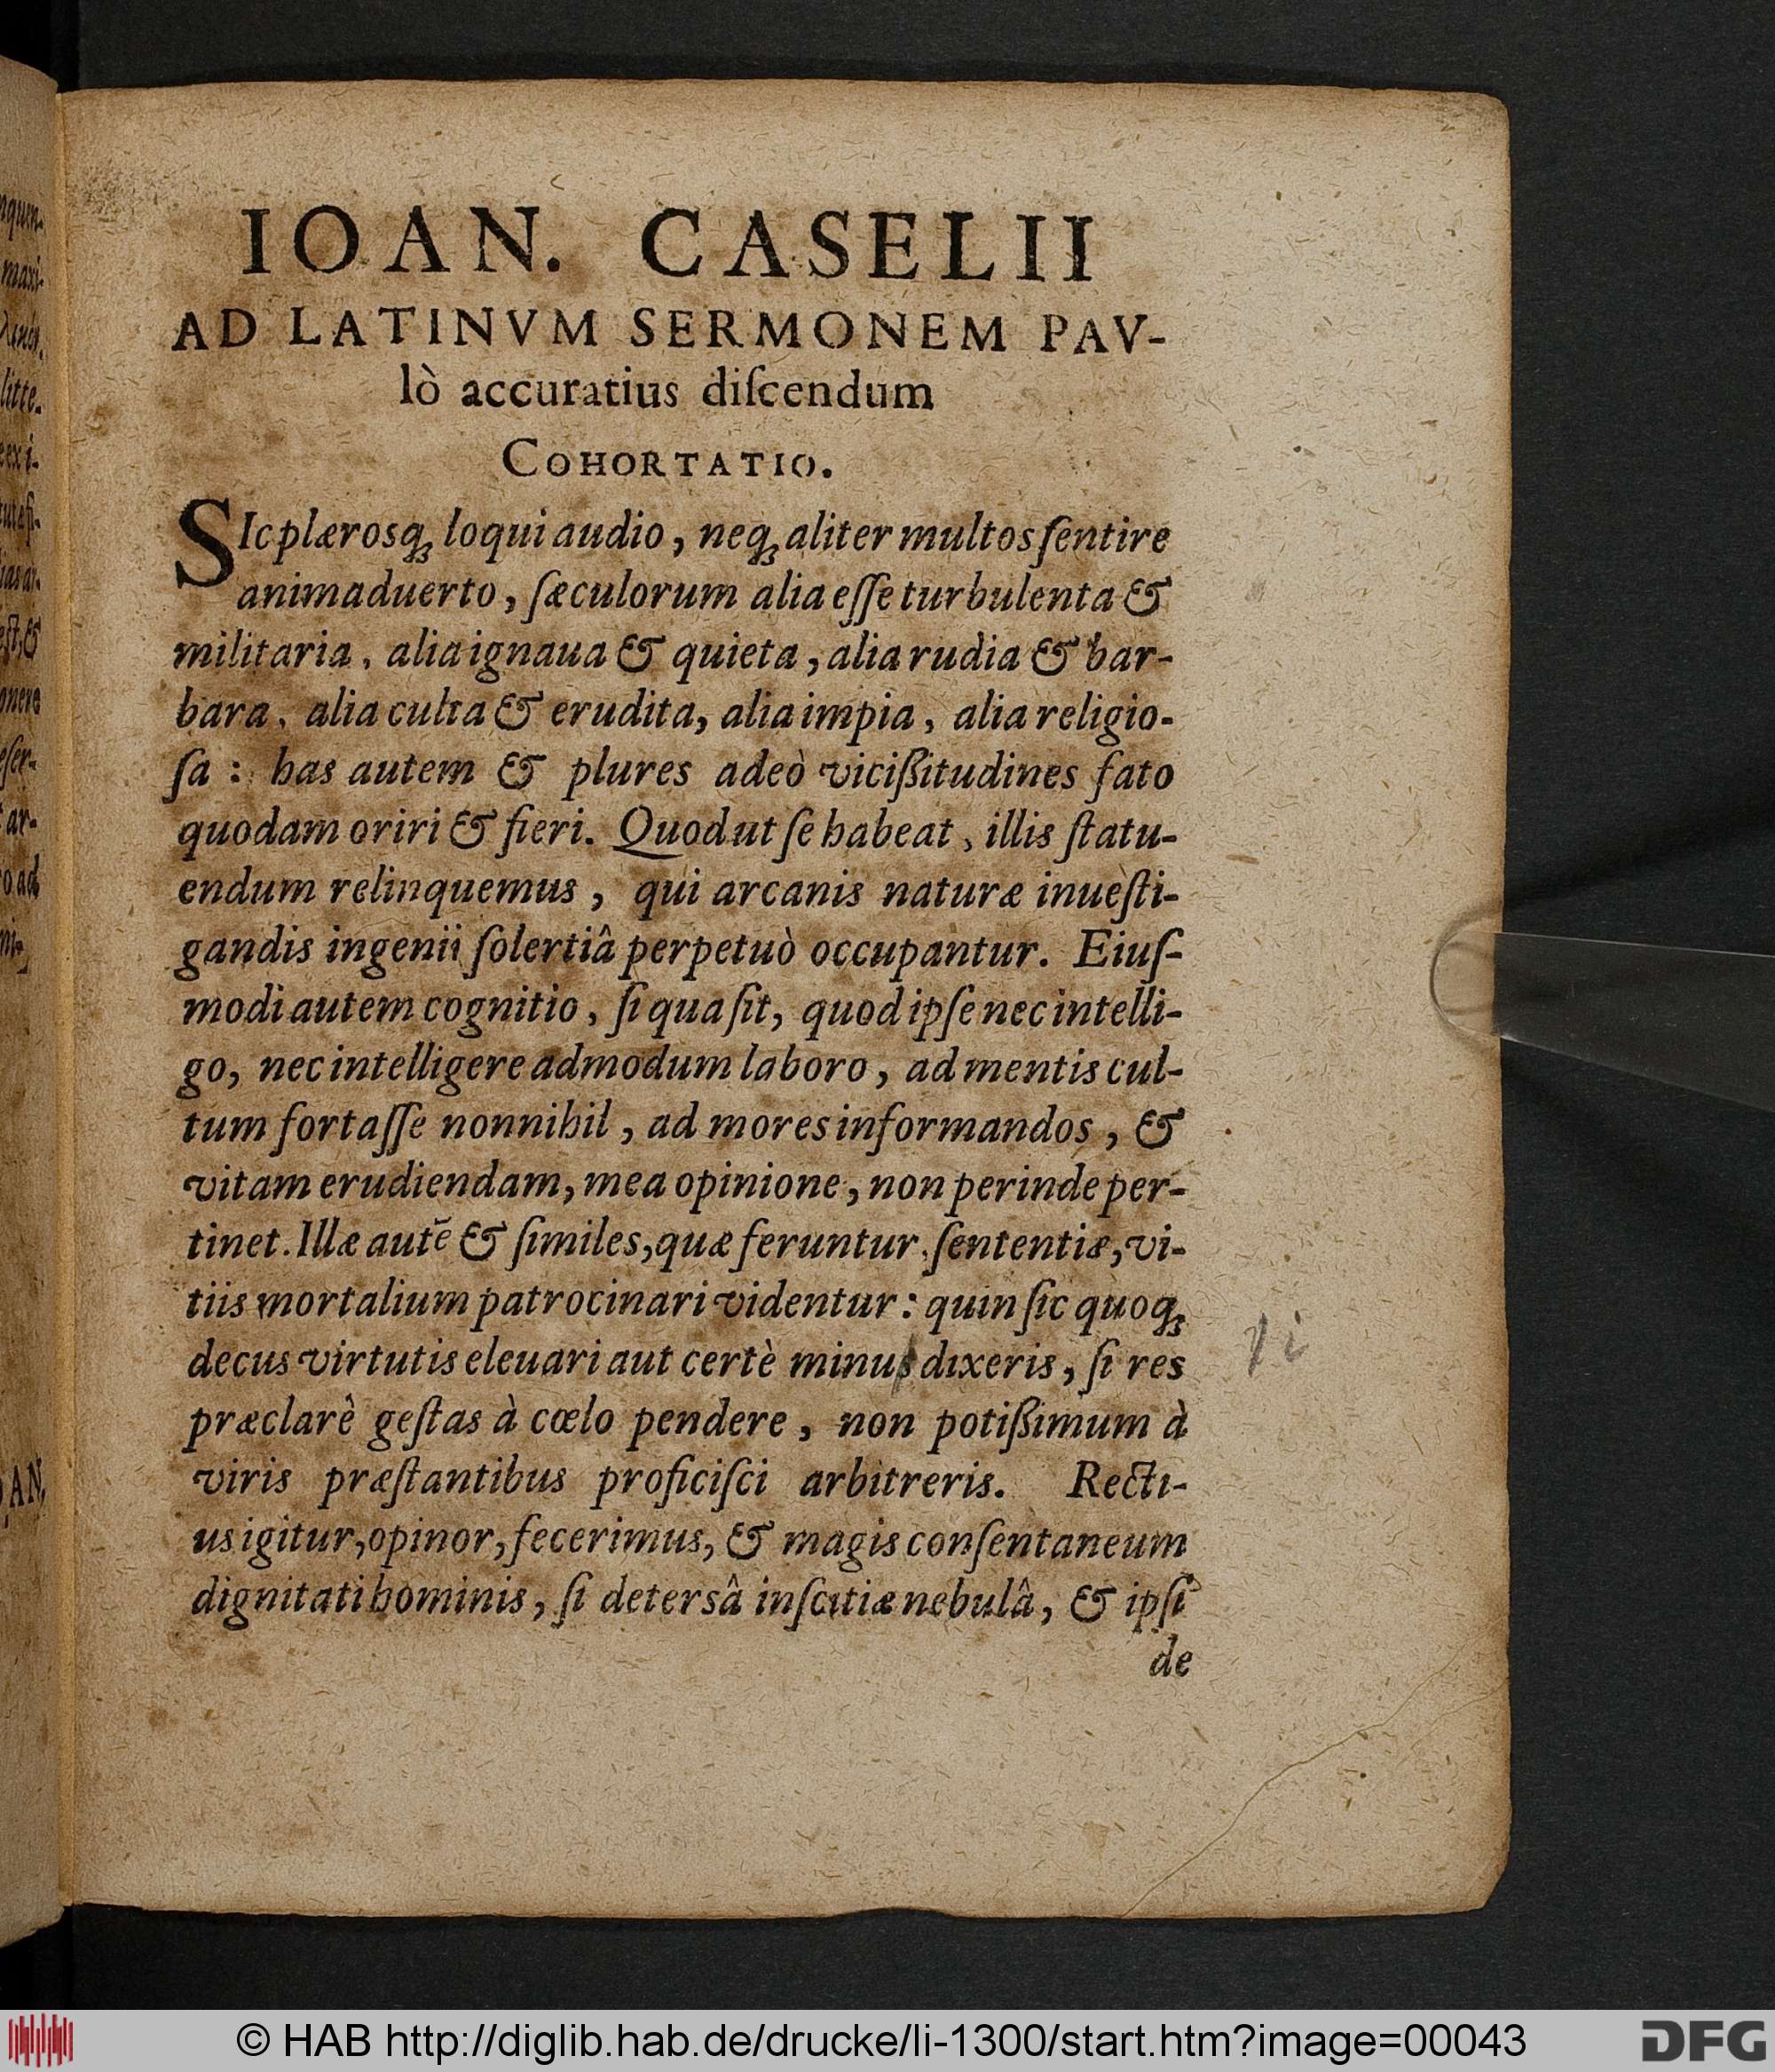 IOAN. CASELII
AD LATINVM SERMONEM PAV-
lò accuratius diſcendum
COHORTATIO.
SIc plærosq; loqui audio, neq; aliter multos ſentire
animaduerto, ſæculorum alia eſſe turbulenta &
militaria, alia ignaua & quieta, alia rudia & bar-
bara, alia culta & erudita, alia impia, alia religio-
ſa: has autem & plures adeò vicißitudines fato
quodam oriri & fieri. Quod ut ſe habeat, illis ſtatu-
endum relinquemus, qui arcanis naturæ inueſti-
gandis ingenii ſolertiâ perpetuò occupantur. Eiuſ-
modi autem cognitio, ſi qua ſit, quod ipſe nec intelli-
go, nec intelligere admodum laboro, ad mentis cul-
tum fortaſſe nonnihil, ad mores informandos, &
vitam erudiendam, mea opinione, non perinde per-
tinet. Illæ autẽ & ſimiles, quæ feruntur, ſententiæ, vi-
tiis mortalium patrocinari videntur: quin ſic quoq;
decus virtutis eleuari aut certè minus dixeris, ſi res
præclarê geſtas à cœlo pendere, non potißimum à
viris præſtantibus proficiſci arbitreris. Recti-
us igitur, opinor, fecerimus, & magis conſentaneum
dignitati hominis, ſi detersâ inſcitiæ nebulâ, & ipſi
de
© HAB http://diglib.hab.de/drucke/li-1300/start.htm?image=00043
DFG